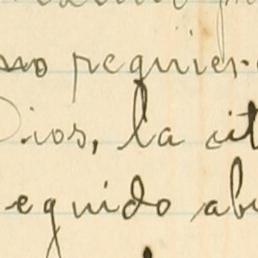 no requier
Dios, la cit
eguido ab